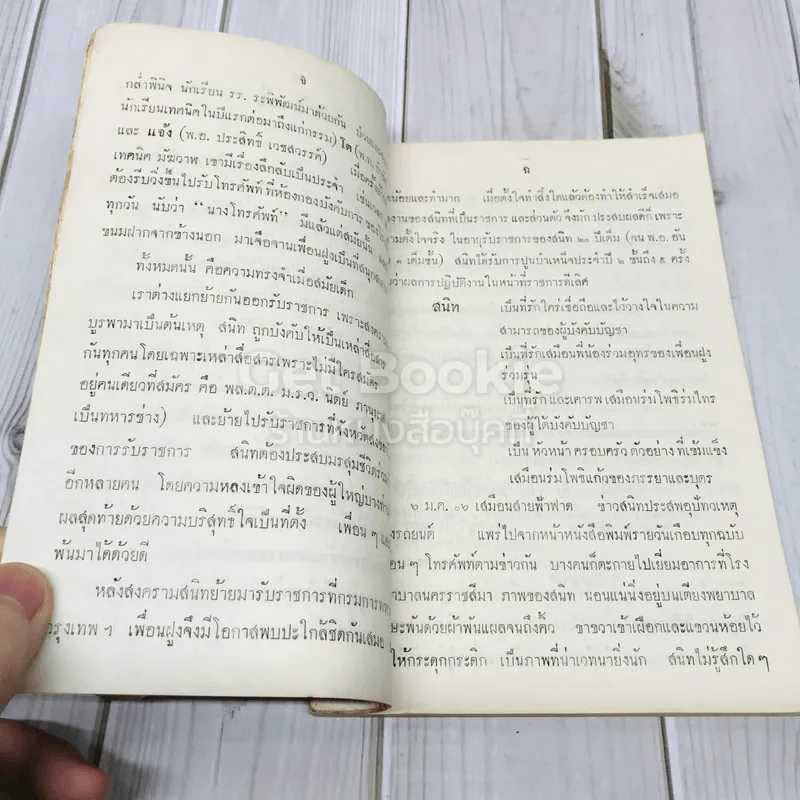 จ
กล่ำพินิจ นักเรียน รร. ระพิพัฒน์มาด้วยกัน
นักเรียนเทคนิคในปีแรกต่อมาถึงแก่กรรม) โต (พ.ท.
และ แจ้ง (พ.อ. ประสิทธิ์ เวชสวรรค์) เมื่อครั้ง
เทคนิค มัฆวาฬ เขามีเรื่องลึกลับเป็นประจำ เช่น
ต้องรีบวิ่งขึ้นไปรับโทรศัพท์ ที่ห้องกองบังคับการ
ทุกวัน นับว่า “นางโทรศัพท์” มีแล้วแต่สมัยนั้น
ขนมฝากจากข้างนอก มาเจือจานเพื่อนฝูงเป็นที่สนุกสนาน
ทั้งหมดนั้น คือความทรงจำเมื่อสมัยเด็ก
เราต่างแยกย้ายกันออกรับราชการ เพราะสงคราม
บูรพามาเป็นต้นเหตุ สนิท ถูกบังคับให้เป็นเหล่าสื่อสาร
กันทุกคน โดยเฉพาะเหล่าสื่อสารเพราะไม่มีใครสมัคร
อยู่คนเดียวที่สมัคร คือ พล.ต.ต. ม.ร.ว. นิตย์
เป็นทหารช่าง) และย้ายไปรับราชการที่จังหวัดสงขลา
ของการรับราชการ สนิทต้องประสบมรสุมชีวิตร่วมกับ
อีกหลายคน โดยความหลงเข้าใจผิดของผู้ใหญ่บางท่าน
ผลสุดท้ายด้วยความบริสุทธิ์ใจเป็นที่ตั้ง เพื่อน ๆ และ
พ้นมาได้ด้วยดี
หลังสงครามสนิทย้ายมารับราชการที่กรมการทหาร
กรุงเทพ ฯ เพื่อนฝูงจึงมีโอกาสพบปะใกล้ชิดกันเสมอ
ฉ
นน้อยและทำมาก เมื่อตั้งใจทำสิ่งใดแล้วต้องทำให้สำเร็จเสมอ
งานของสนิทที่เป็นราชการ และส่วนตัว จึงมักประสบผลดีก็เพราะ
ามตั้งใจจริง ในอายุรับราชการของสนิท ๒๐ ปีเต็ม (จน พ.อ. อัน
๑ เต็มขั้น) สนิทได้รับการปูนบำเหน็จประจำปี ๒ ขั้นถึง ๕ ครั้ง
ว่าผลการปฏิบัติงานในหน้าที่ราชการดีเลิศ
สนิท เป็นที่รัก ใคร่ เชื่อถือและไว้วางใจในความ
สามารถของผู้บังคับบัญชา
เป็นที่รักเสมือนพี่น้องร่วมอุทรของเพื่อนฝูง
ร่วมรุ่น
เป็นที่รัก และเคารพ เสมือนร่มโพธิ์ร่มไทร
ของผู้ใต้บังคับบัญชา
เป็น หัวหน้า ครอบครัว ตัวอย่าง ที่เข้มแข็ง
เสมือนร่มโพธิ์แก้วของภรรยาและบุตร
๖ ม.ค. ๐๖ เสมือนสายฟ้าฟาด ข่าวสนิทประสพอุปัทวเหตุ
งรถยนต์ แพร่ไปจากหน้าหนังสือพิมพ์รายวันเกือบทุกฉบับ
อน ๆ โทรศัพท์ตามข่าวกัน บางคนก็ตะกายไปเยี่ยมอาการที่โรง
าบาลนครราชสีมา ภาพของสนิท นอนแน่นิ่งอยู่บนเตียงพยาบาล
ษะพันด้วยผ้าพันแผลจนถึงคิ้ว ขาขวาเข้าเฝือกและแขวนห้อยไว้
ให้กระดุกกระดิก เป็นภาพที่น่าเวทนายิ่งนัก สนิทไม่รู้สึกใด ๆ
Bookie
ร้านหนังสือบุ๊คกี้